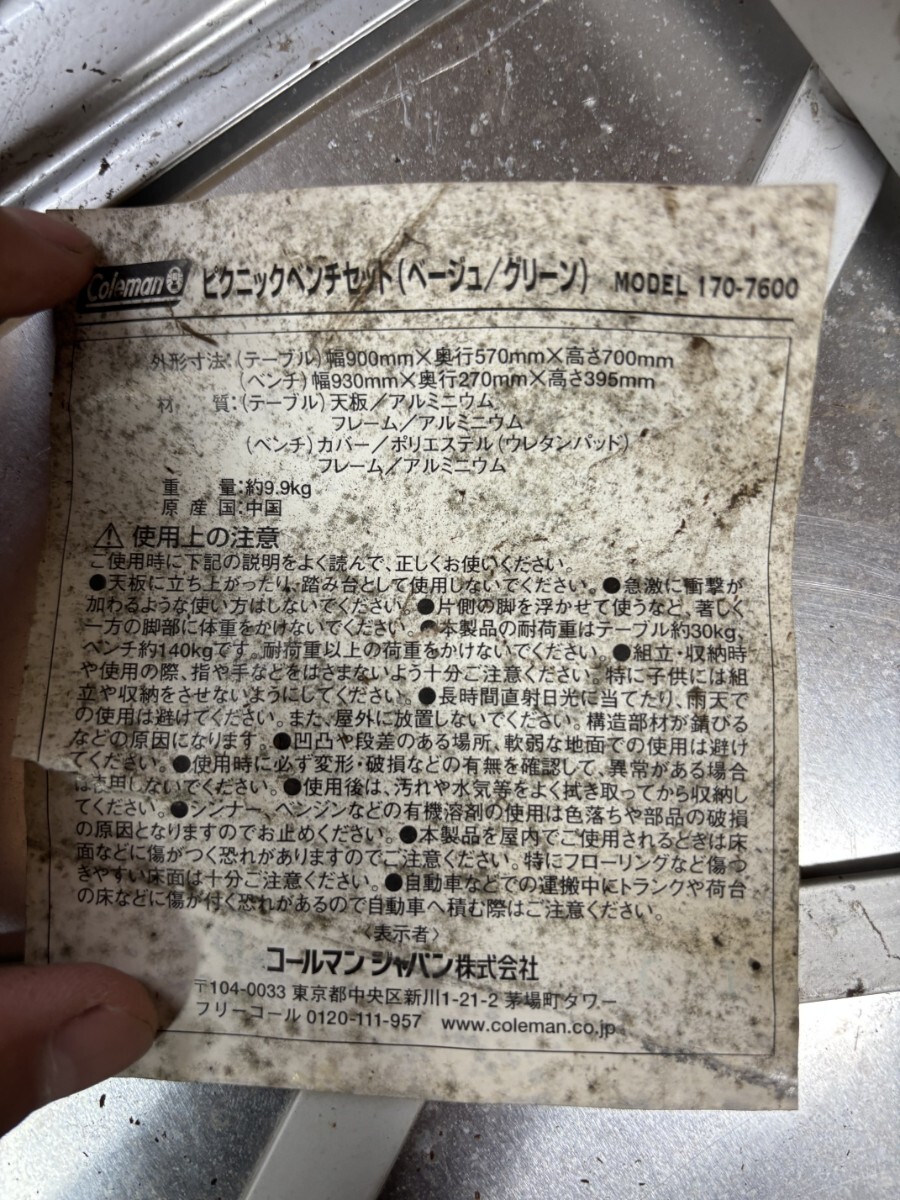 Coleman ピクニックベンチセット(ベージュ/グリーン) MODEL 170-7600
外形寸法:(テーブル)幅900mm×奥行570mm×高さ700mm
(ベンチ)幅930mm×奥行270mm×高さ395mm
材 質:(テーブル)天板/アルミニウム
フレーム/アルミニウム
(ベンチ)カバー/ポリエステル(ウレタンパッド)
フレーム/アルミニウム
重 量:約9.9kg
原 産 国:中国
⚠使用上の注意
ご使用時に下記の説明をよく読んで、正しくお使いください。
●天板に立ち上がったり、踏み台として使用しないでください。●急激に衝撃が
加わるような使い方はしないでください。●片側の脚を浮かせて使うなど、著しく
一方の脚部に体重をかけないでください。●本製品の耐荷重はテーブル約30kg、
ベンチ約140kgです。耐荷重以上の荷重をかけないでください。●組立・収納時
や使用の際、指や手などをはさまないよう十分ご注意ください。特に子供には組
立や収納をさせないようにしてください。●長時間直射日光に当てたり、雨天で
の使用は避けてください。また、屋外に放置しないでください。構造部材が錆びる
などの原因になります。●凹凸や段差のある場所、軟弱な地面での使用は避け
てください。●使用時に必ず変形・破損などの有無を確認して、異常がある場合
は使用しないでください。●使用後は、汚れや水気等をよく拭き取ってから収納し
てください。●シンナー、ベンジンなどの有機溶剤の使用は色落ちや部品の破損
の原因となりますのでお止めください。●本製品を屋内でご使用されるときは床
面などに傷がつく恐れがありますのでご注意ください。特にフローリングなど傷つ
きやすい床面は十分ご注意ください。●自動車などでの運搬中にトランクや荷台
の床などに傷が付く恐れがあるので自動車へ積む際はご注意ください。
〈表示者〉
コールマン ジャパン株式会社
〒104-0033 東京都中央区新川1-21-2 茅場町タワー
フリーコール 0120-111-957 www.coleman.co.jp